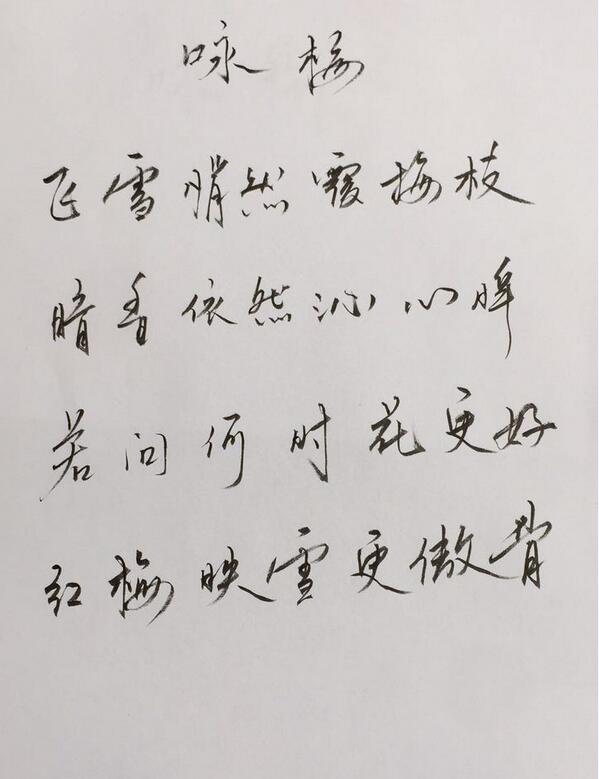 咏梅
飞雪悄然覆梅枝
暗香依然沁心脾
若问何时花更好
红梅映雪更傲